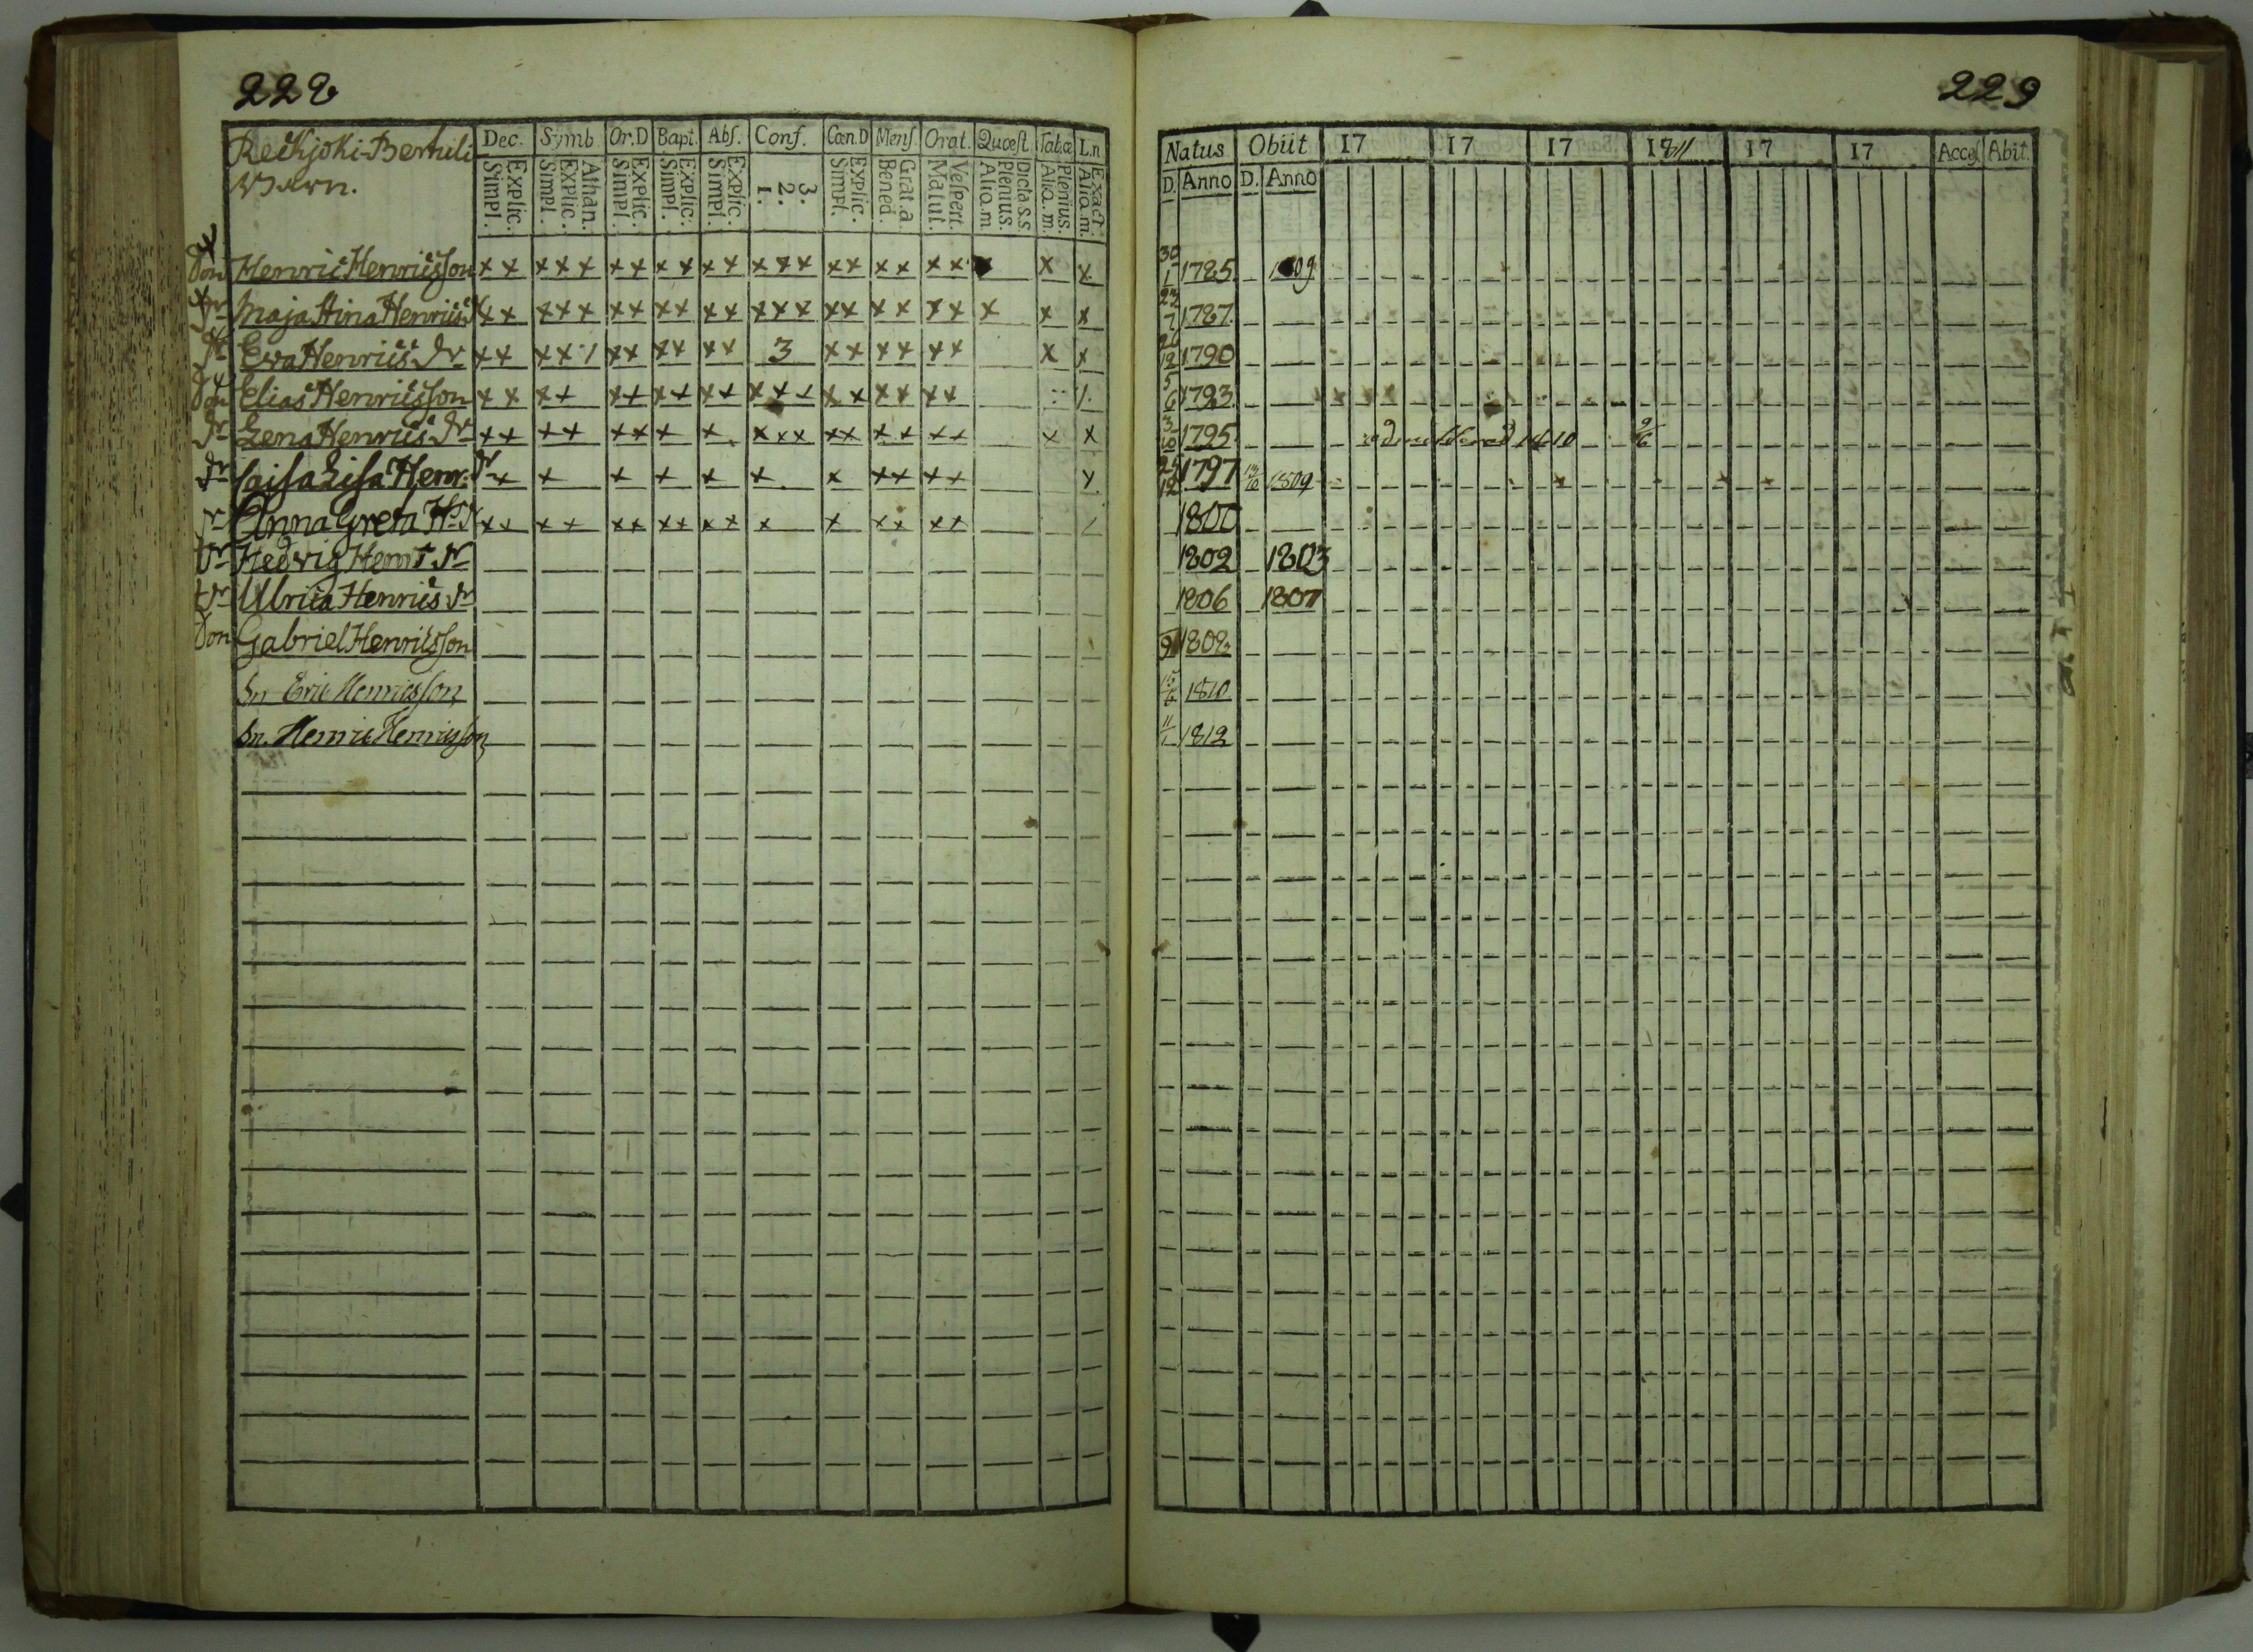 228
Reckjoki-Bertuli
Barn.
Dec. Symb. Or.D Bapt. Abſ. Conf. Cœn.D Menſ. Orat. Quæſt. Tab.œ L.n
Explic. Simpl. Athan. Explic. Simpl. Explic. Simpl. Explic. Simpl. Explic. Simpl. 3. 2. 1. Explic. Simpl. Grat.a Bened. Veſpert. Matut. Dicta S.S. Plenius. Aliq.m Plenius. Aliq.m. Exact. Aliq.m.
Son Henric Henricsson x x x x x x x x x x x x x x x x x x x x x x
Dr Maja Stina Henrics Dr x x x x x x x x x x x x x x x x x x x x x x x
Dr Eva Henrics Dr x x x x / x x x x x x 3 x x x x x x x x
Son Elias Henricsson x x x x x x x x x x x x x x x x x x x
Dr Lena Henrics Dr x x x x x x x x x x x x x x x x x x x
Dr Caisa Lisa Henr: Dr x x x x x x x x x x x x
Dr Anna Greta H: Dr x x x x x x x x x x x x x x x x
Dr Hedvig Henr: Dr
Dr Ulrica Henrics Dr
Son Gabriel Henricsson
Sn Eric Henricsson
Sn. Henric Henricsson
229
Natus Obiit 17 17 17 1811 17 17 Acceſ. Abit.
D. Anno D. Anno
30/1 1785 1809
23/7 1787
26/12 1790
5/6 1793
3/10 1795 9/6
25/12 1797 13/10 1809
1800
1802 1803
1806 1807
1808
1810
11/1 1812